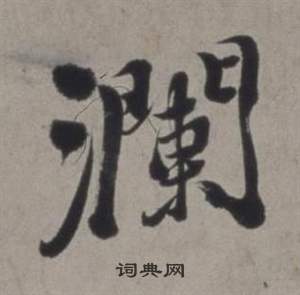 瀾
词典网